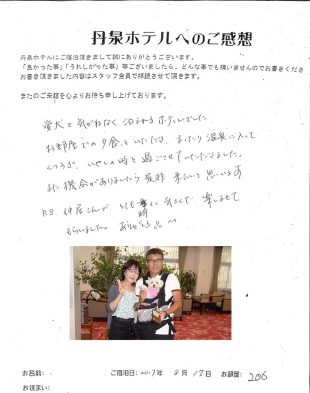 丹泉ホテルへのご感想
丹泉ホテルにご宿泊頂きまして誠にありがとうございます。
「良かった事」「うれしかった事」等ございましたら、どんな事でも構いませんのでお書きくださ
お書き頂きました内容はスタッフ全員で拝読させて頂きます。
またのご来館を心よりお待ち申し上げております。
愛犬と気がねなく泊まれるホテルでした。
お部屋での夕食をいただき、まったり温泉に入って
くつろぎ、いやしの時を過ごさせていただきました。
また機会がありましたら是非来たいと思います
P.S. 仲居さんがとても 気さくで 楽しませて
もらいました。ありがとう
お名前:
ご宿泊日: 2017年 8月 17日 お部屋: 206
お住まい: